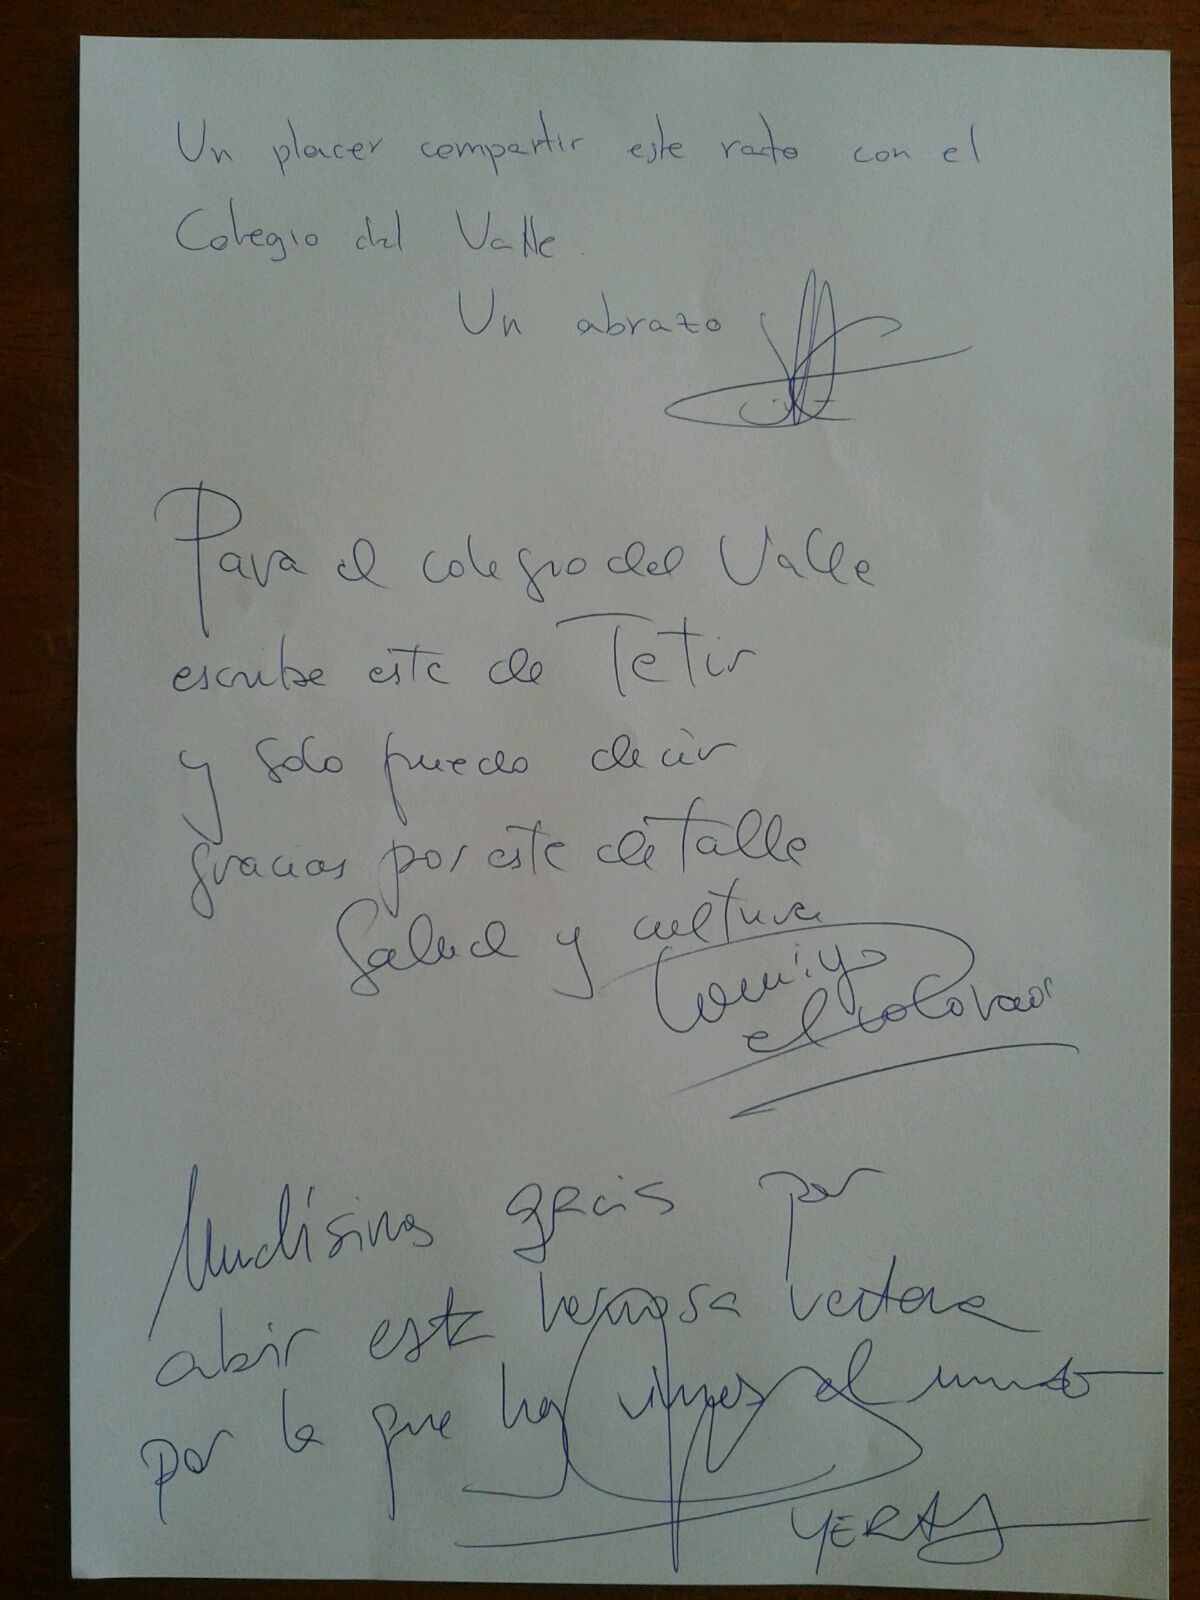 Un placer compartir este rato con el
Colegio del Valle
Un abrazo
Para el colegio del Valle
escribe este de Tetir
y solo puedo decir
gracias por este detalle
Salud y cultura
Domingo
el Colorao
Muchísimas gracias por
abrir esta hermosa ventana
por la que hoy vimos el mundo
YERAY